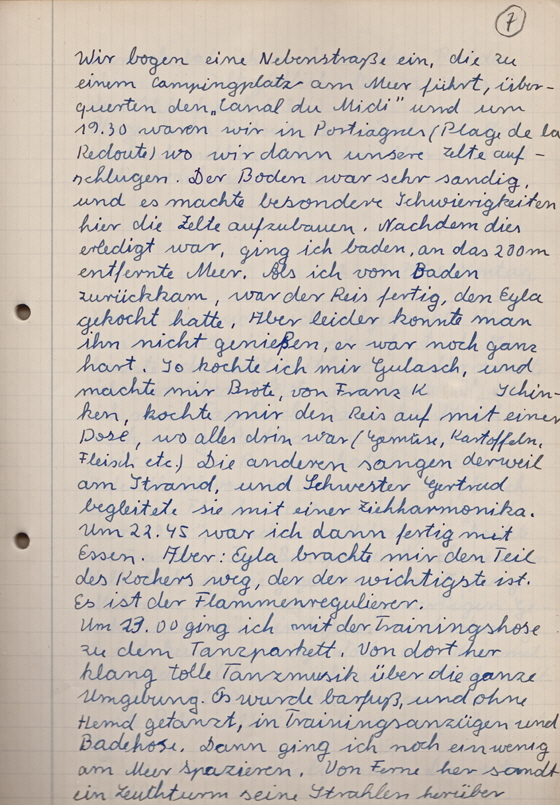 7
Wir bogen eine Nebenstraße ein, die zu
einem Campingplatz am Meer führt, über-
querten den „Canal du Midi" und um
19.30 waren wir in Portiagnes (Plage de la
Redoute) wo wir dann unsere Zelte auf-
schlugen. Der Boden war sehr sandig,
und es machte besondere Schwierigkeiten
hier die Zelte aufzubauen. Nachdem dies
erledigt war, ging ich baden, an das 200m
entfernte Meer. Als ich vom Baden
zurückkam, war der Reis fertig, den Eyla
gekocht hatte. Aber leider konnte man
ihn nicht genießen, er war noch ganz
hart. So kochte ich mir Gulasch, und
machte mir Brote, von Franz K Schin-
ken, kochte mir den Reis auf mit einer
Dose, wo alles drin war (Gemüse, Kartoffeln,
Fleisch etc.) Die anderen sangen derweil
am Strand, und Schwester Gertrud
begleitete sie mit einer Ziehharmonika.
Um 22.45 war ich dann fertig mit
Essen. Aber: Eyla brachte mir den Teil
des Kochers weg, der der wichtigste ist.
Es ist der Flammenregulierer.
Um 23.00 ging ich mit der Trainingshose
zu dem Tanzparkett. Von dort her
klang tolle Tanzmusik über die ganze
Umgebung. Es wurde barfuß, und ohne
Hemd getanzt, in Trainingsanzügen und
Badehose. Dann ging ich noch ein wenig
am Meer spazieren. Von Ferne her sandt
ein Leuchtturm seine Strahlen herüber